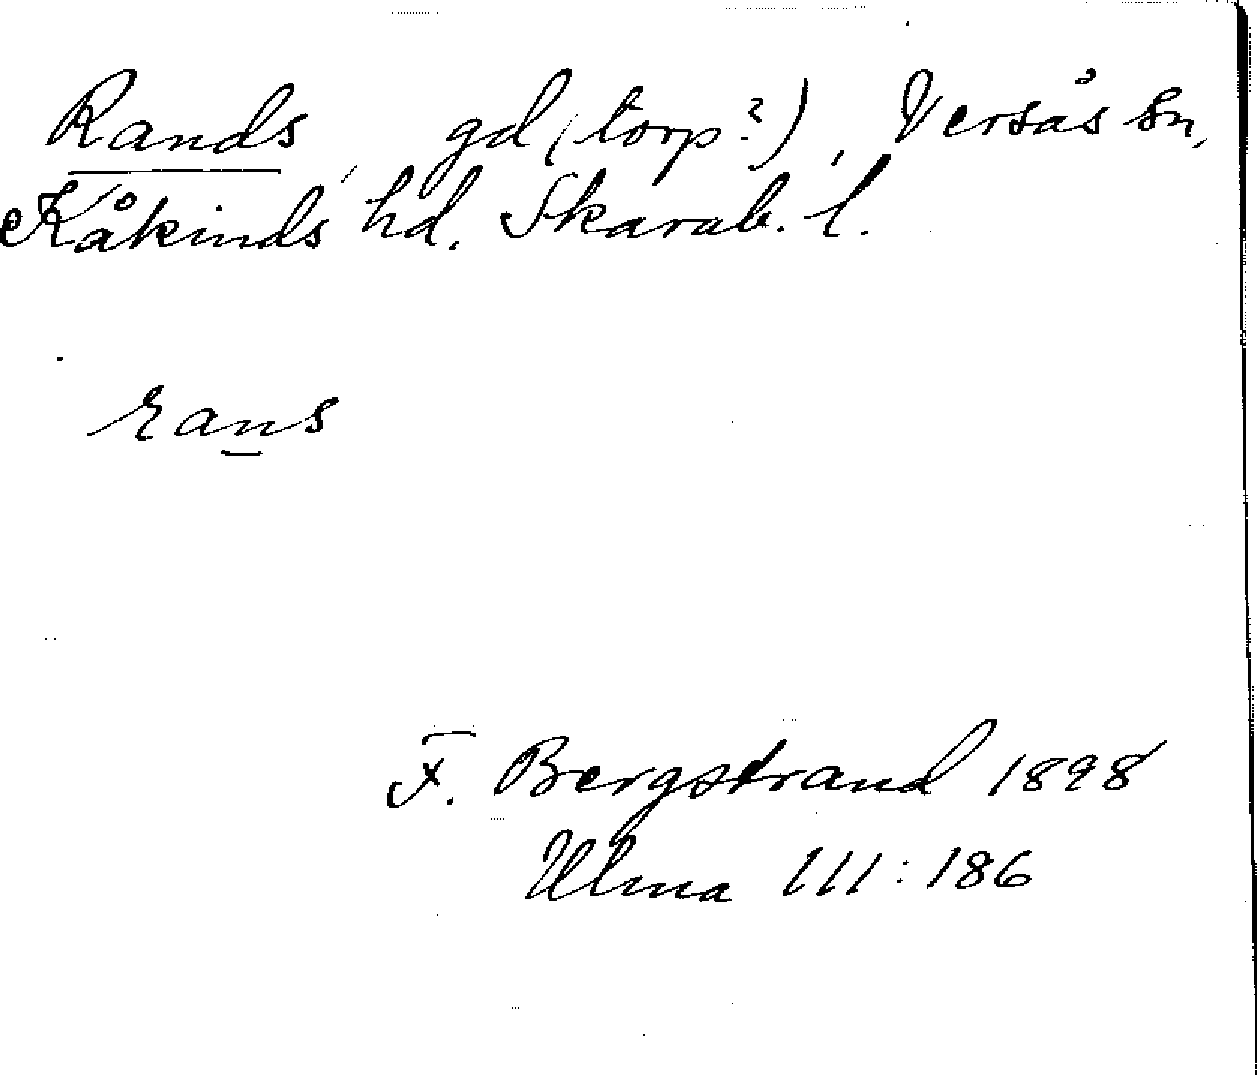 Rands, gd (torp?), Versås sn,
Kåkinds hd. Skarab. l.
rans
F. Bergstrand 1898
Ulma 111:186